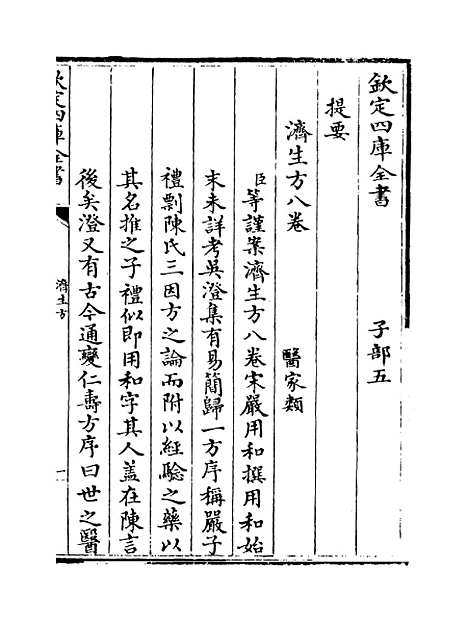 欽定四庫全書　子部五
提要
濟生方八卷　醫家類
臣等謹案濟生方八卷宋嚴用和撰用和始
末未詳考吳澄集有易簡歸一方序稱嚴子
禮剽陳氏三因方之論而附以經驗之藥以
其名推之子禮似即用和字其人蓋在陳言
後矣澄又有古今通變仁壽方序曰世之醫
欽定四庫全書
濟生方
一